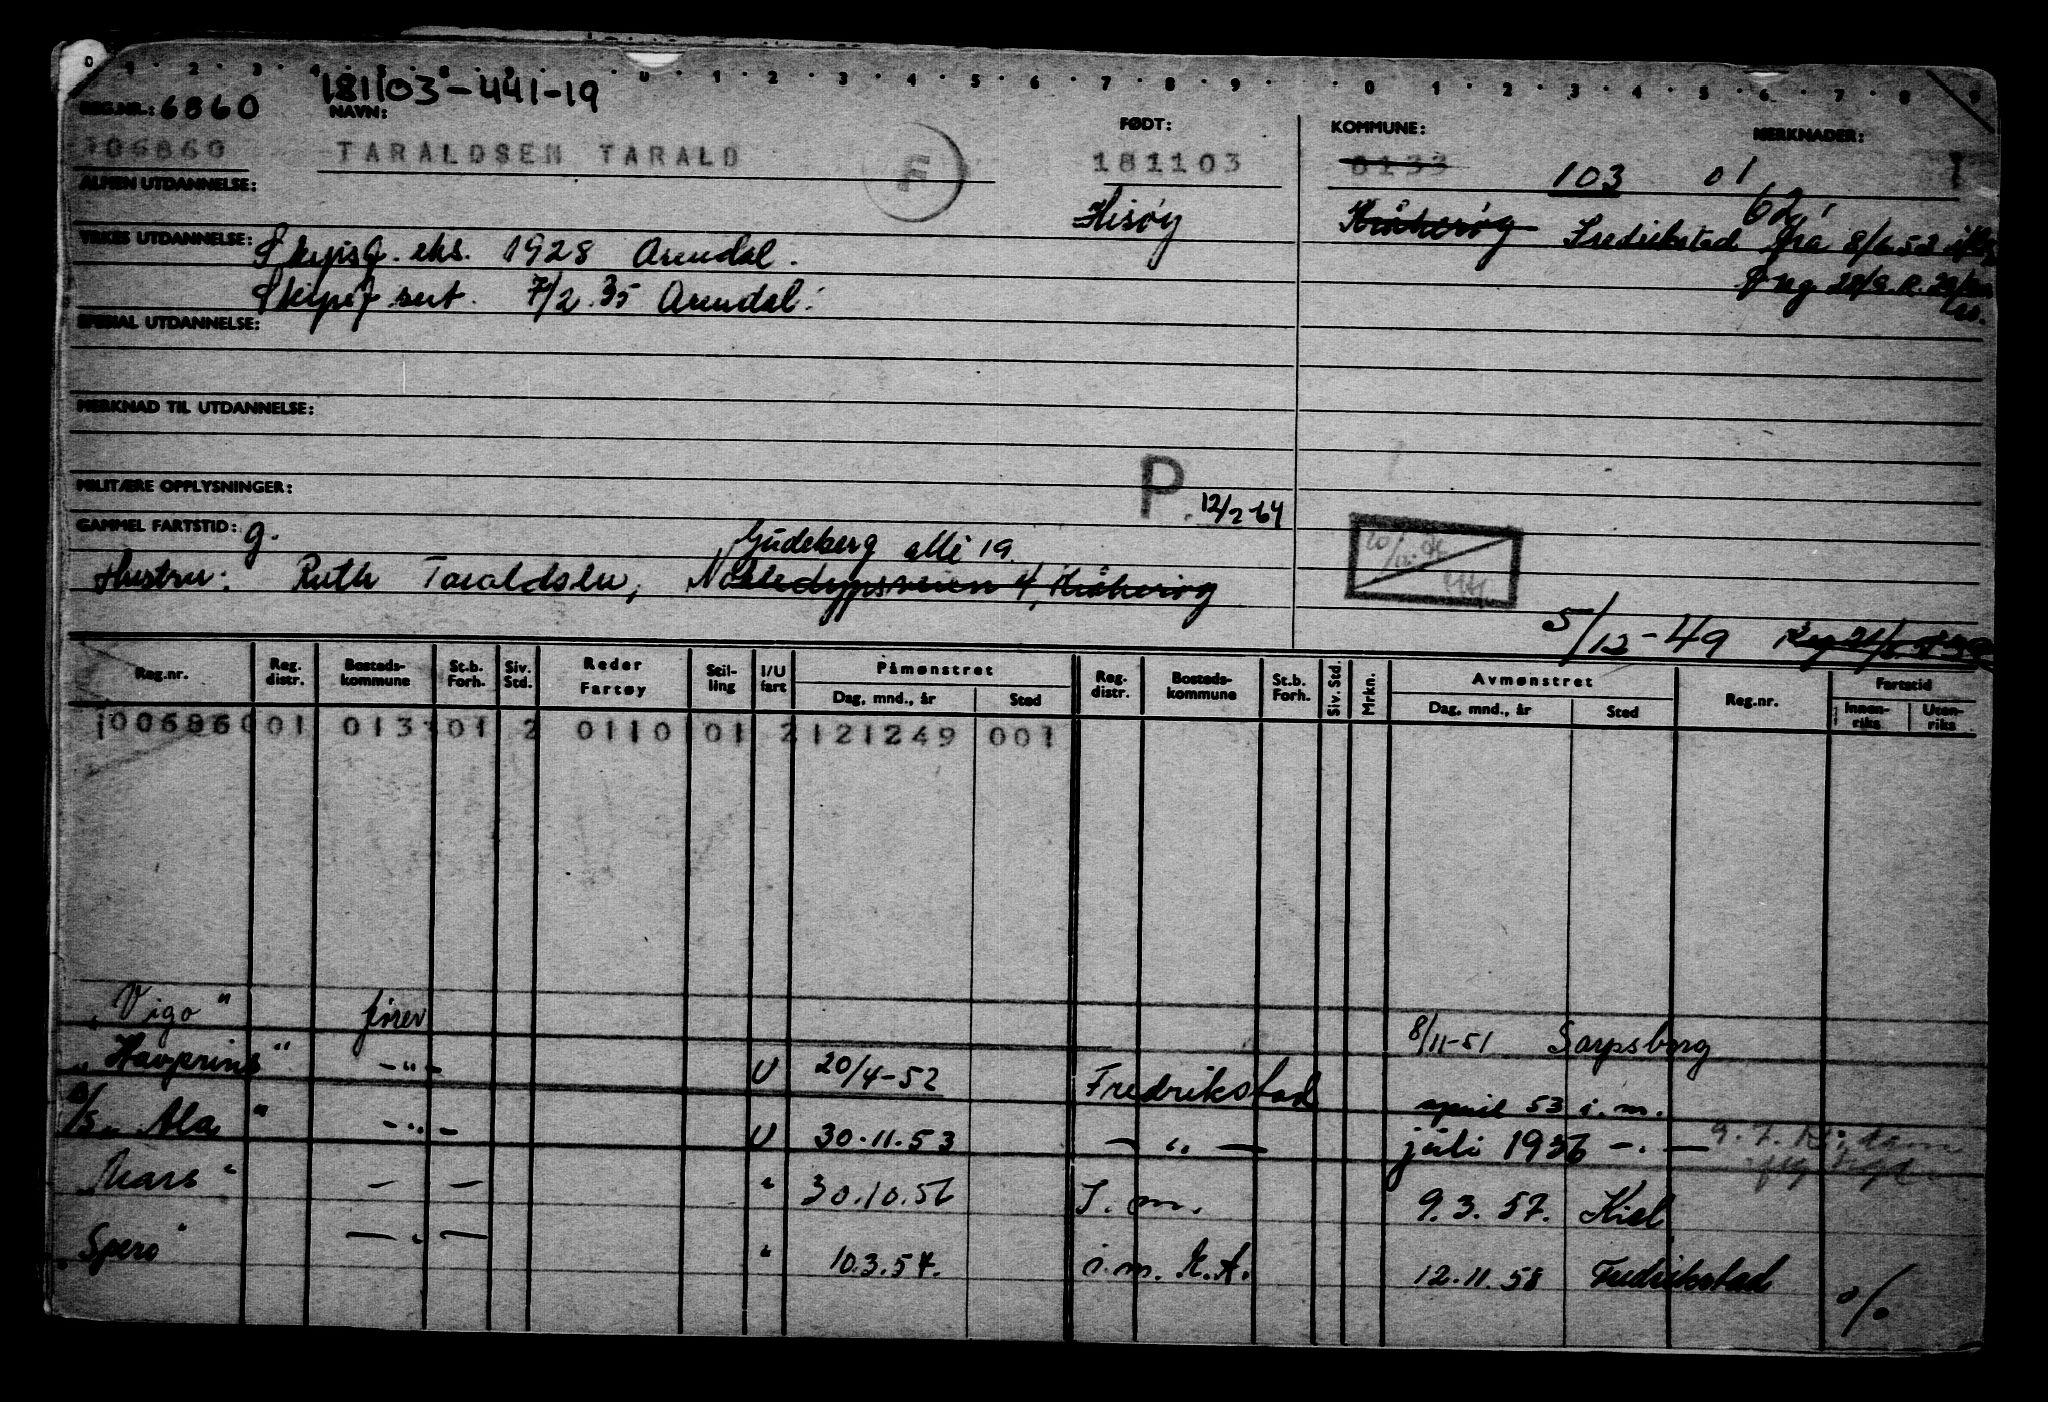 0 1 2 3 4 1 2 3 4 5 6 7 8 9 0 1 2 3 4 5 6 7 8 9
181103-441-19
REG.NR.: 6860 NAVN: FØDT: KOMMUNE: MERKNADER:
006860 TARALDSEN TARALD F 181103 0133 103 01 1
ALMEN UTDANNELSE: Hisøy Kråkerøy Fredrikstad fra 8/6 53
62
YRKES UTDANNELSE: Skipsf. eks. 1928 Arendal.
Skipsf. sert. 7/2.35 Arendal.
SPESIAL UTDANNELSE:
MERKNAD TIL UTDANNELSE:
MILITÆRE OPPLYSNINGER: P. 12/2-64
GAMMEL FARTSTID: g.
Gudeberg allè 19.
Hustru: Ruth Taraldsen, 4, Kråkerøy
5/12-49
Reg.nr. Reg. distr. Bosteds-kommune St.b. Forh. Siv. Std. Reder Fartøy Stil-ling I/U fart Påmønstret Dag, mnd., år Sted Reg. distr. Bosteds-kommune St.b. Forh. Siv. Std. Mrkn. Avmønstret Dag, mnd., år Sted Reg.nr. Fartstid Innen-riks Uten-riks
1006860 01 0133 01 2 0110 01 2 121249 001
"Vigo" fører 8/11-51 Sarpsborg
"Havprins" -"- U 20/4-52 Fredrikstad april 53 i.m.
D/S "Ala" -"- U 30.11.53 -"- juli 1956 -"-
"Mars" -"- " 30.10.56 I.m. 9.3.57. Kiel
"Spero" -"- " 10.3.57. i.m. K.A. 12.11.58 Fredrikstad o/o